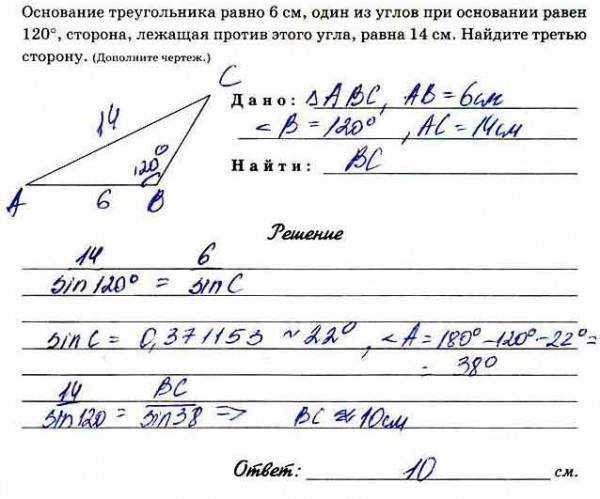 Основание треугольника равно 6 см, один из углов при основании равен
120°, сторона, лежащая против этого угла, равна 14 см. Найдите третью
сторону. (Дополните чертеж.)
C
Дано: △ABC, AB = 6см
14
∠B = 120°, AC = 14см
120°
Найти: BC
A 6 B
Решение
14 6
sin120° = sinC
sinC = 0,371153 ~ 22°, ∠A = 180° − 120° − 22° =
= 38°
14 BC
sin120 = sin38 => BC ≈ 10см
Ответ: 10 см.